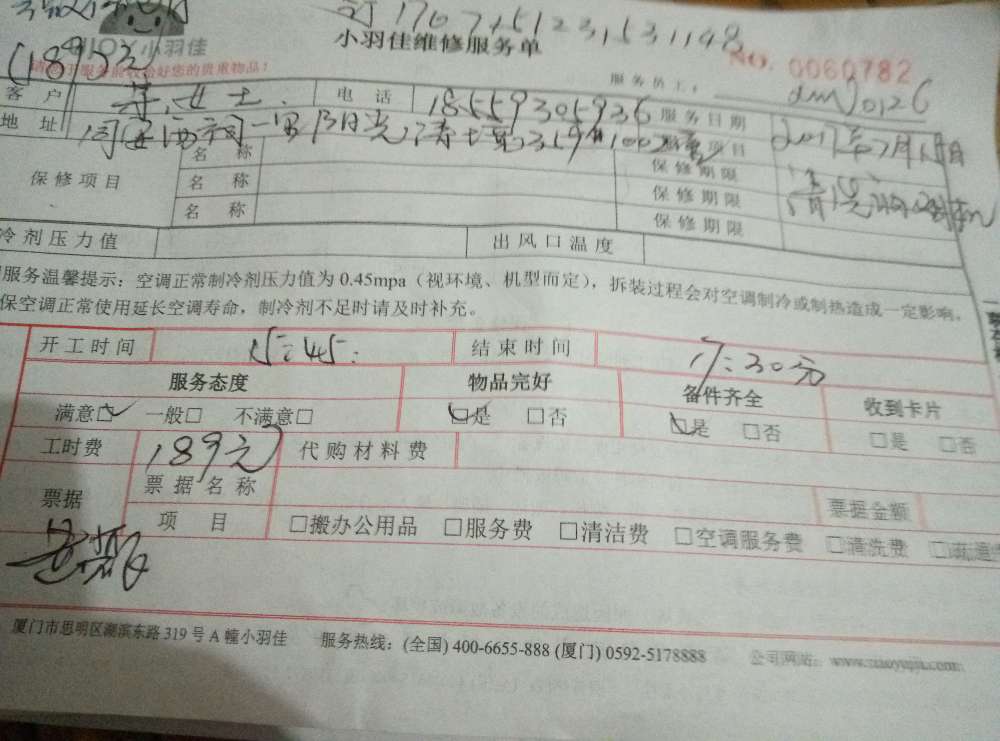 订1707251231531148
(189元)
小羽佳
小羽佳维修服务单
NO. 0060782
服务前收拾好您的贵重物品!
服务员工: dm20126
客 户 女士. 电 话 18559305936 服务日期 2017年7月
地 址
保修项目 名 称 保修期限
名 称 保修期限
名 称 保修期限
冷剂压力值 出风口温度
服务温馨提示:空调正常制冷剂压力值为 0.45mpa(视环境、机型而定),拆装过程会对空调制冷或制热造成一定影响,
保空调正常使用延长空调寿命,制冷剂不足时请及时补充。
开工时间 15:45: 结束时间 17:30分
服务态度 物品完好 备件齐全 收到卡片
满意☑ 一般□ 不满意□ ☑是 □否 ☑是 □否 □是 □否
工时费 189元 代购材料费
票据 票据名称 票据金额
项 目 □搬办公用品 □服务费 □清洁费 □空调服务费 □清洗费
厦门市思明区湖滨东路 319 号 A 幢小羽佳 服务热线:(全国) 400-6655-888 (厦门) 0592-5178888 公司网站:www.xiaoyujia.com